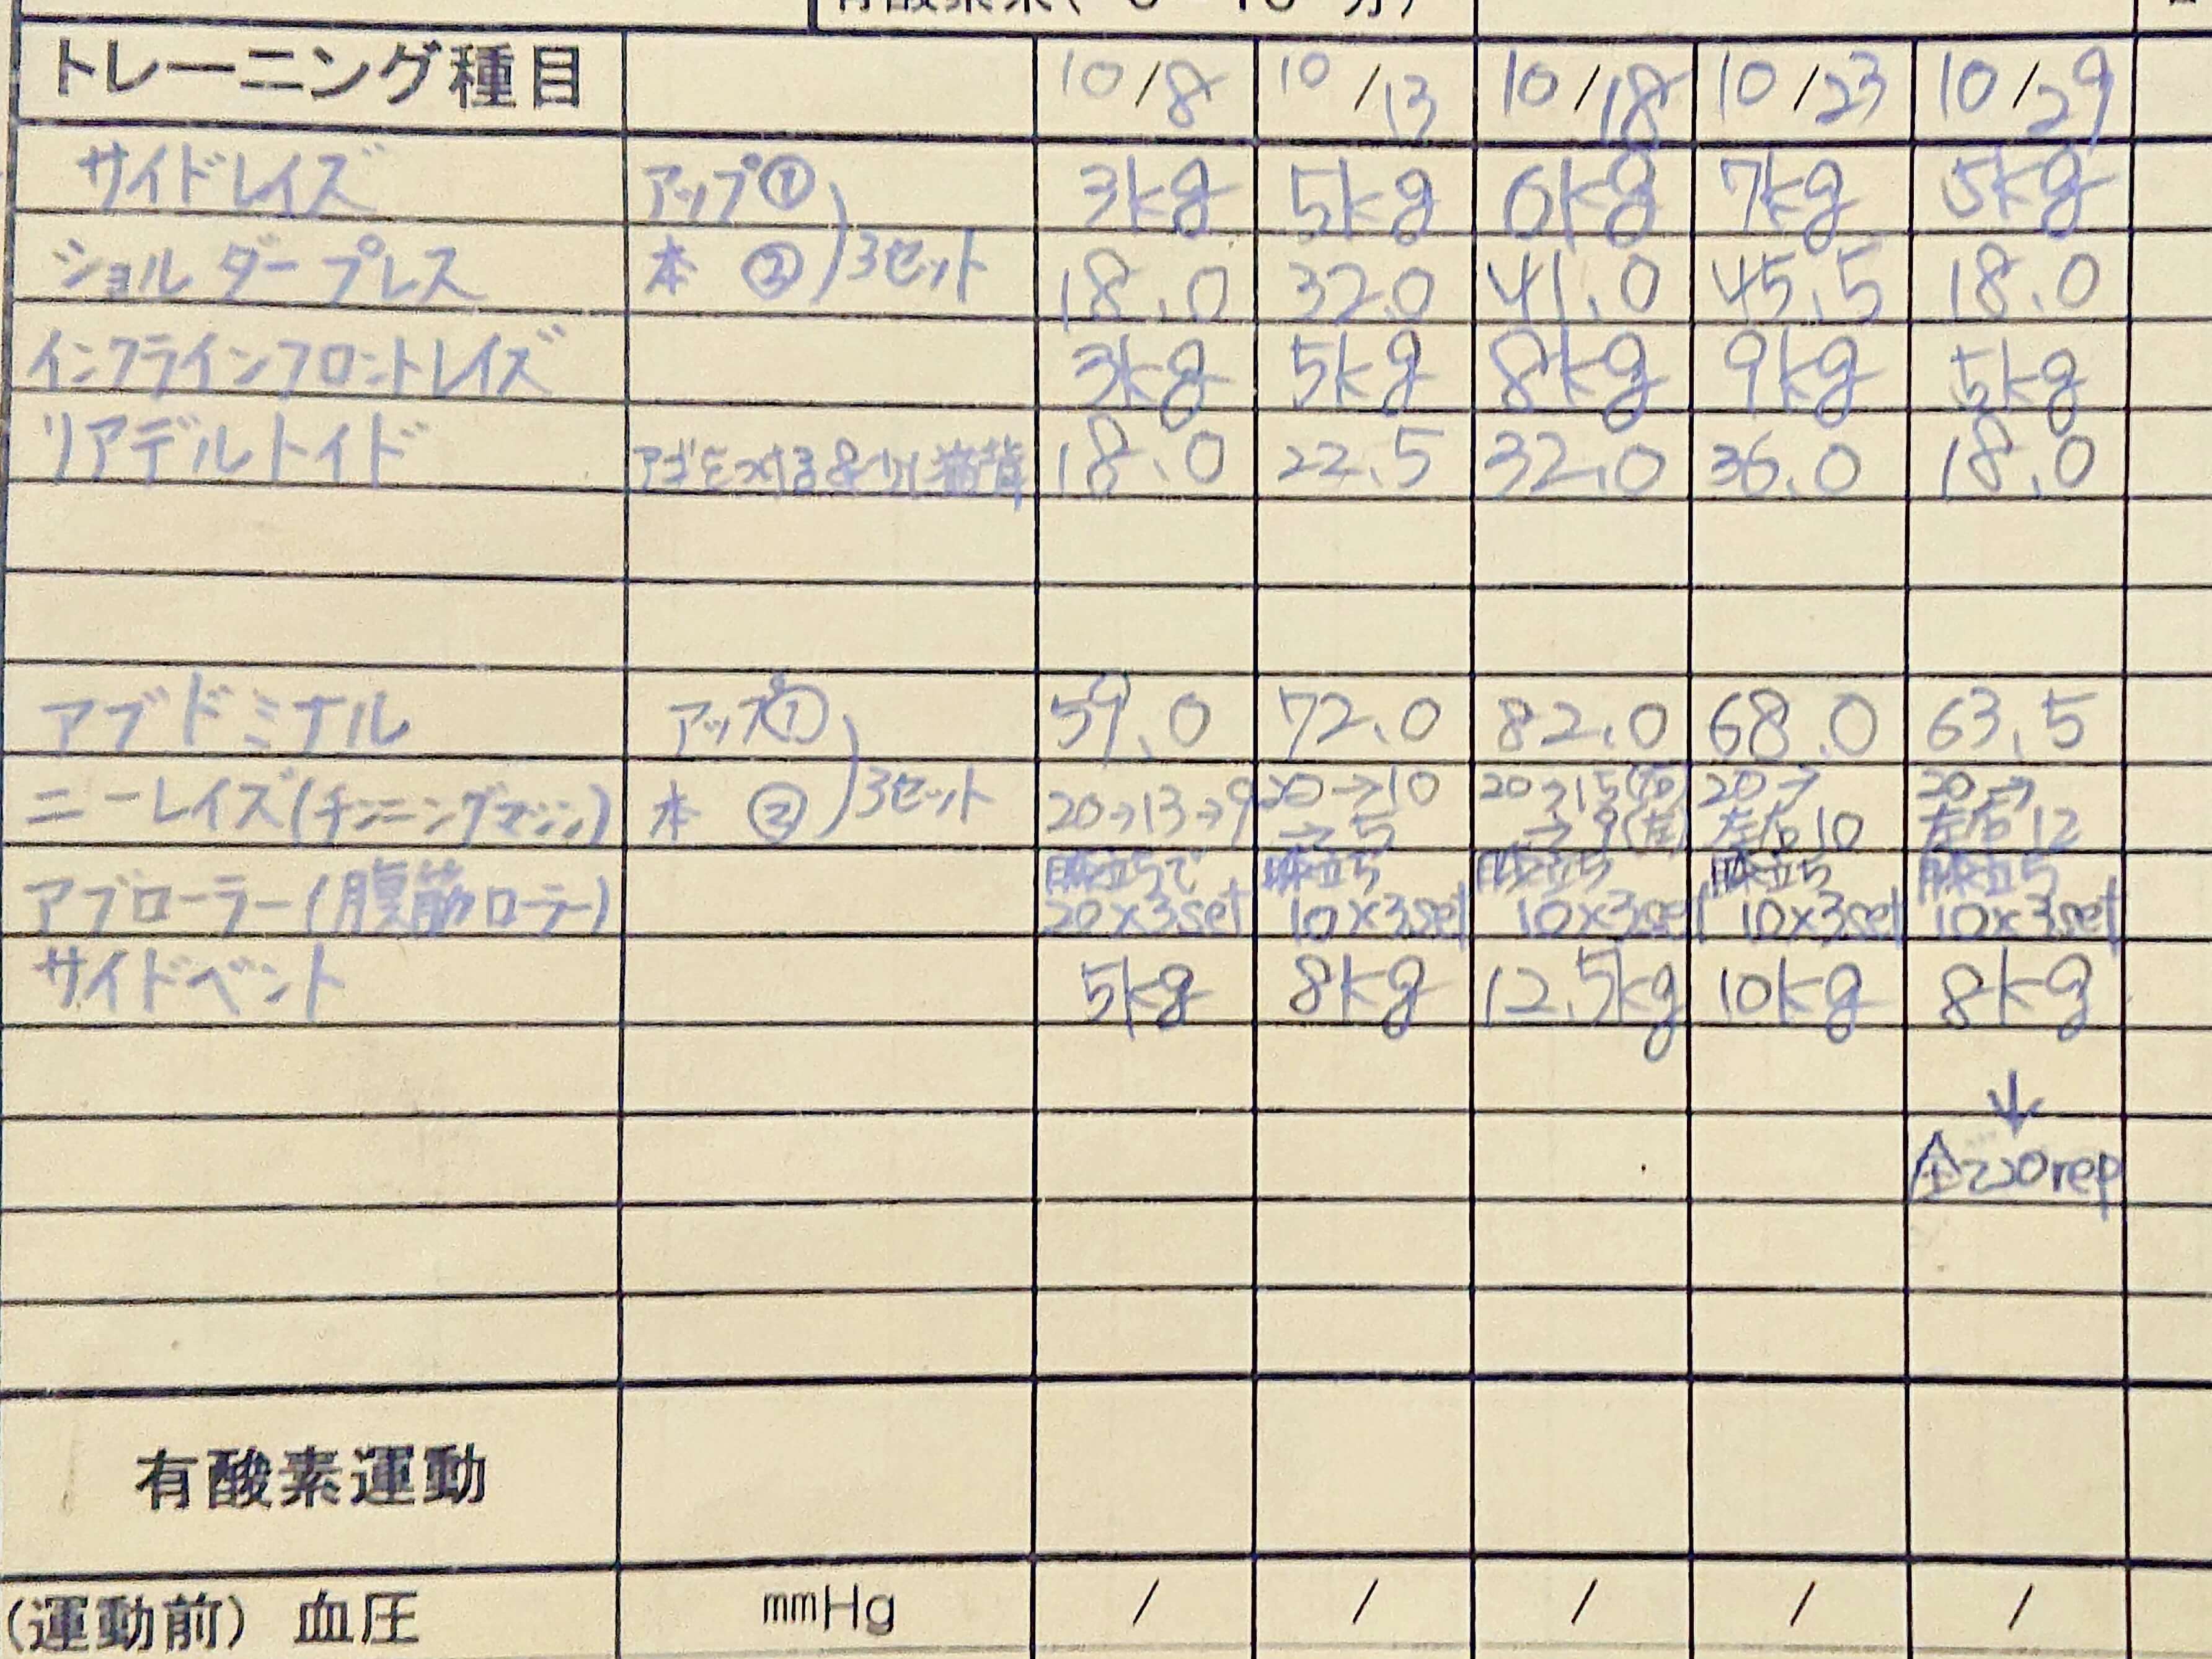 トレーニング種目 10/8 10/13 10/18 10/23 10/29
サイドレイズ アップ① 3kg 5kg 6kg 7kg 5kg
ショルダープレス 本 ② 3セット 18.0 32.0 41.0 45.5 18.0
インクラインフロントレイズ 3kg 5kg 8kg 9kg 5kg
リアデルトイド 18.0 22.5 32.0 36.0 18.0
アブドミナル アップ① 59.0 72.0 82.0 68.0 63.5
ニーレイズ(チンニングマシン) 本 ② 3セット 20→13→9 20→10 →5 20→15(右) →9(左) 20→ 左右10 20→ 左右12
アブローラー(腹筋ローラー) 膝立ちで 20×3set 膝立ち 10×3set 膝立ち 10×3set 膝立ち 10×3set 膝立ち 10×3set
サイドベント 5kg 8kg 12.5kg 10kg 8kg
↓
全て20rep
有酸素運動
(運動前) 血圧 mmHg / / / / /